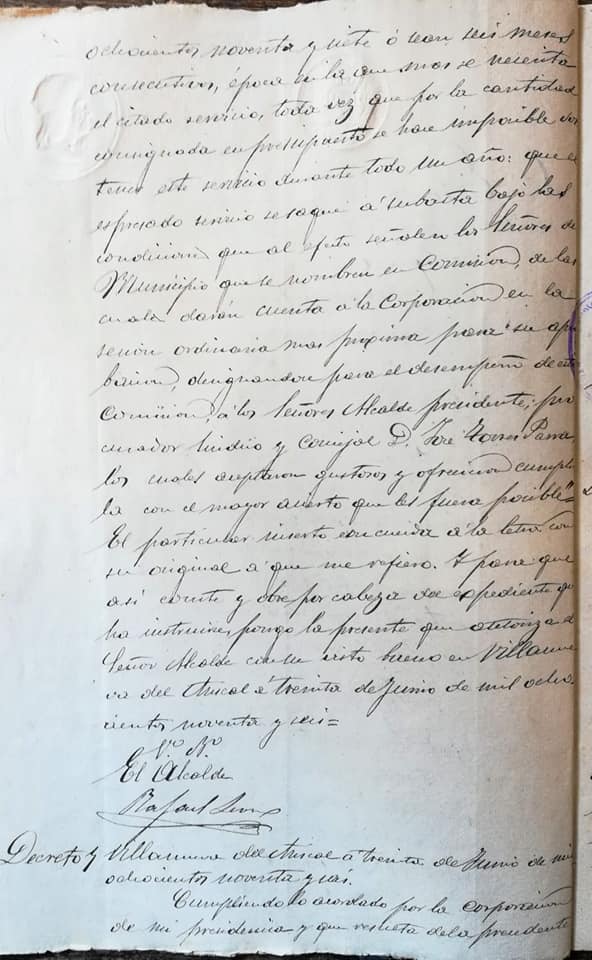 ochocientos noventa y siete ó sean seis meses
consecutivos, época en la que mas se necesita
el citado servicio, toda vez que por la cantidad
consignada en presupuesto se hace imposible sos
tener este servicio durante todo un año: que el
espresado servicio se saque á subasta bajo las
condiciones que al efecto señalen los Señores de
Municipio que se nombren en Comision, de las
cuales darán cuenta á la Corporacion en la
sesion ordinaria mas proxima para su apro
bacion, designandose para el desempeño de esta
Comision, á los Señores Alcalde presidente, pro
curador Sindico y Concejal D. José Torres Parra
los cuales aceptaron gustosos y ofrecieron cumplir
la con el mayor acierto que les fuera posible"=
El particular inserto concuerda á la letra con
su original a que me refiero. Y para que
asi conste y obre por cabeza del expediente que
ha instruirse, pongo la presente que autoriza el
Señor Alcalde con su visto bueno en Villanue
va del Ariscal á treinta de Junio de mil ocho
cientos noventa y seis=
Vº Bº
El Alcalde
Rafael
Decreto} Villanueva del Ariscal á treinta de Junio de mil
ochocientos noventa y seis.
Cumpliendo lo acordado por la Corporacion
de mi presidencia y que resulta de la precedente